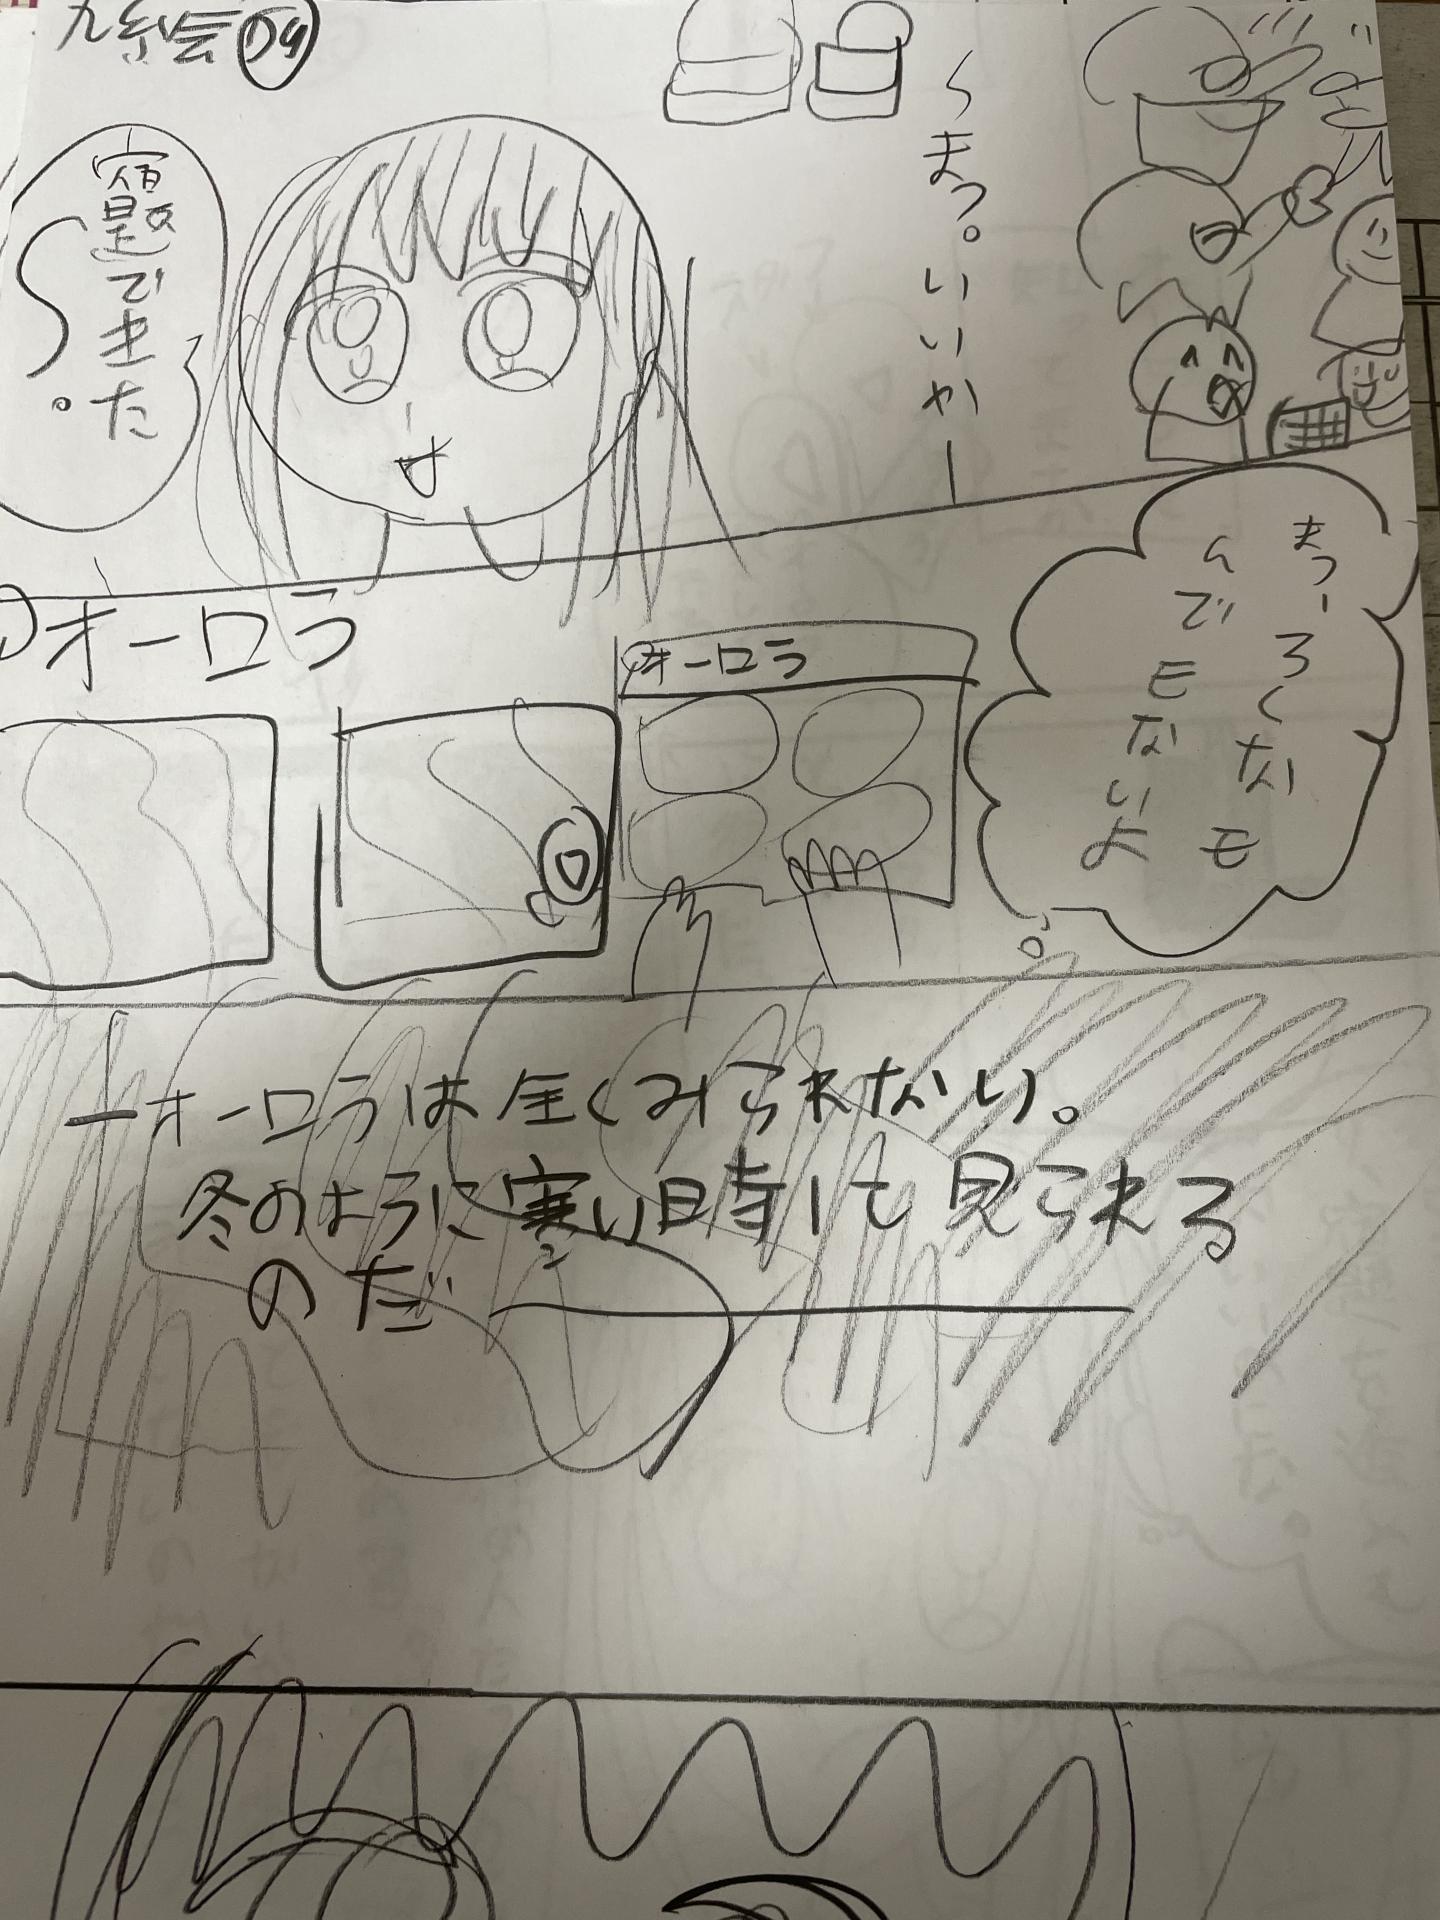 〜まっ。いいかー
宿題できた
〜。
まったくなも
んでもないよ
オーロラ
オーロラ
ーオーロラは全くみられない。
冬のように寒い時にも見られる
のだ